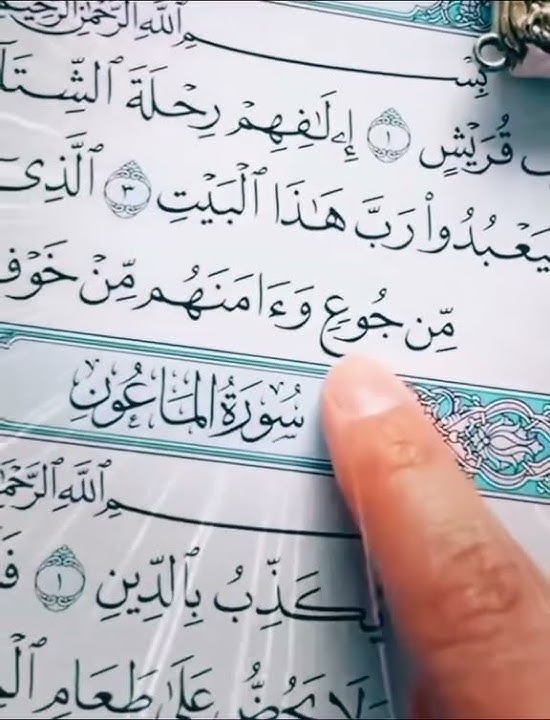 بِسْمِ ٱللَّهِ ٱلرَّحْمَٰنِ ٱلرَّحِيمِ
قُرَيْشٍ ١ إِۦلَٰفِهِمْ رِحْلَةَ ٱلشِّتَا
يَعْبُدُوا۟ رَبَّ هَٰذَا ٱلْبَيْتِ ٣ ٱلَّذِىٓ
مِّن جُوعٍ وَءَامَنَهُم مِّنْ خَوْف
سُورَةُ المَاعُونِ
ـسْمِ ٱللَّهِ ٱلرَّحْمَ
يُكَذِّبُ بِٱلدِّينِ ١ فَ
وَلَا يَحُضُّ عَلَىٰ طَعَامِ ٱلْمِ